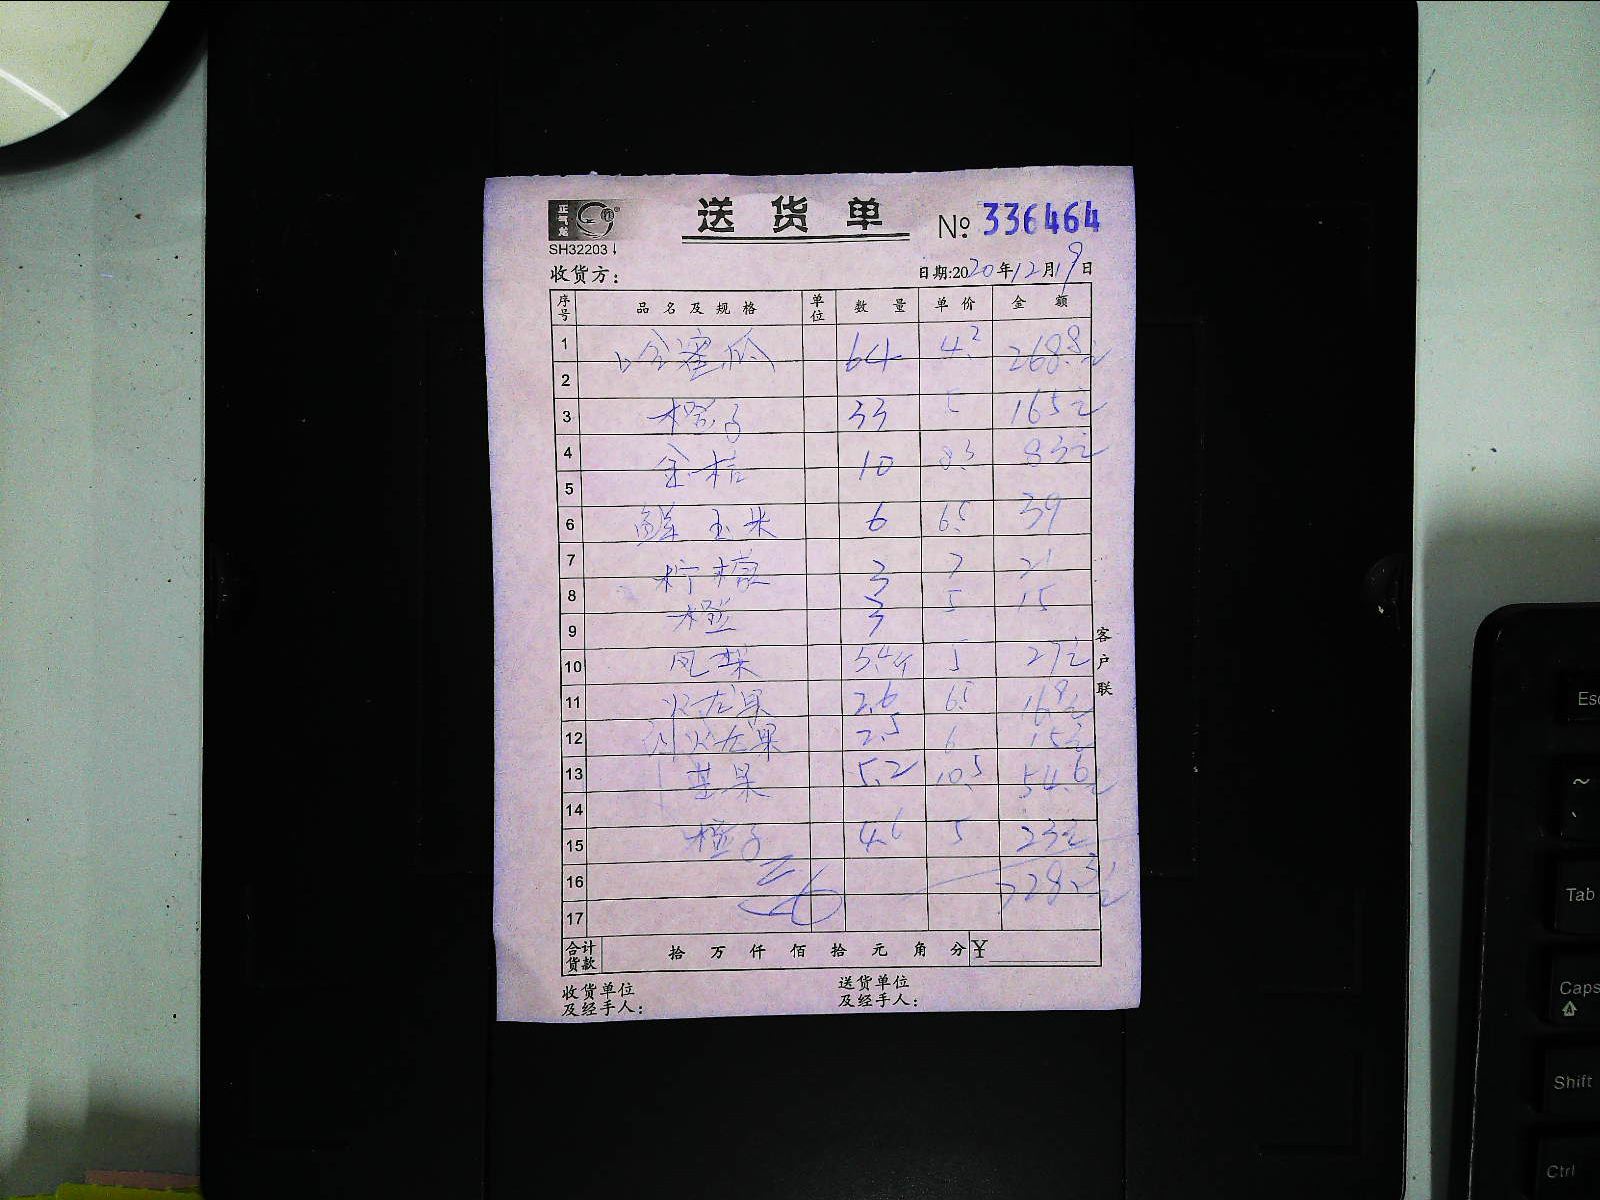 正气龙
送货单
№ 336464
SH32203
收货方: 日期:2020年12月19日
序号 品名及规格 单位 数量 单价 金额
1 哈蜜瓜 64 4.2 268.8元
2
3 橙子 33 5 165元
4 金桔 10 8.3 83元
5
6 鲜玉米 6 6.5 39
7 柠檬 3 7 21
8
9 橙 3 5 15
10 凤梨 5.4斤 5 27元
11 火龙果 2.6 6.5 16.9元
12 火龙果 2.5 6 15元
13 苹果 5.2 10.5 54.6元
14
15 橙子 4.6 5 23元
16 728.3元
17
合计货款 拾 万 仟 佰 拾 元 角 分 ¥
收货单位及经手人: 送货单位及经手人:
客户联
Esc
~
、
Tab
Caps
Shift
Ctrl